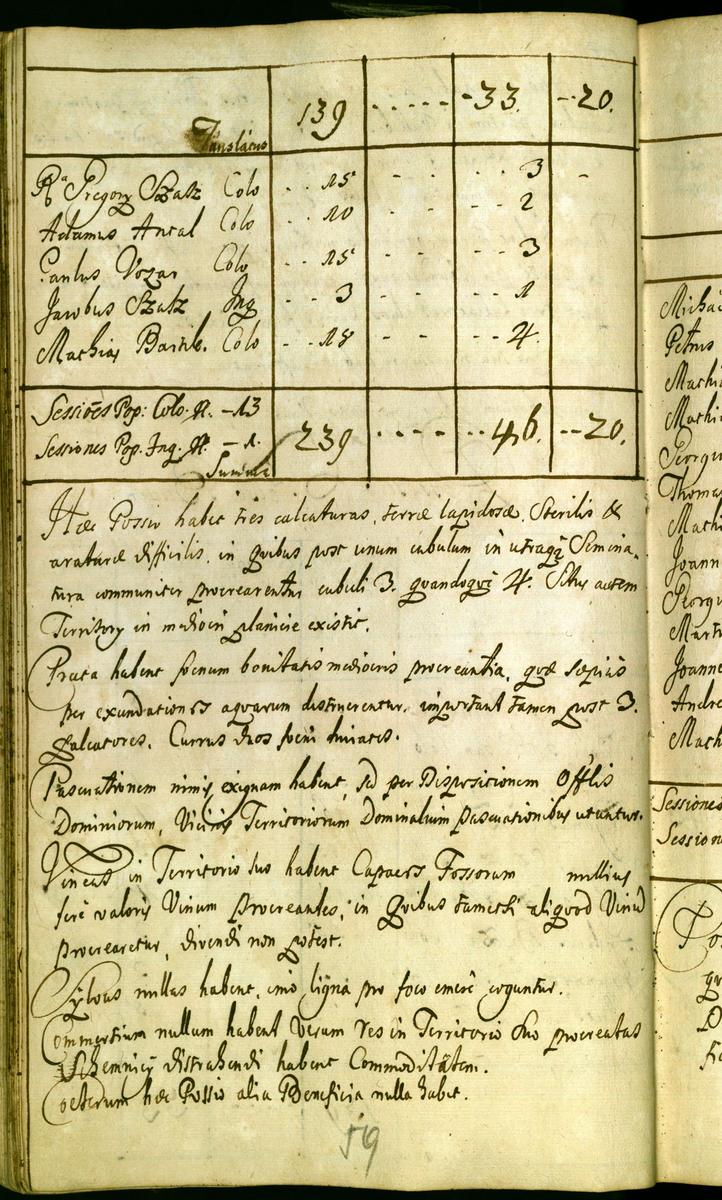 Translatus 139 ..... -33. --20.
Ra Gregory Szatz Colo -- 15 - - -- 3 -
Adamus Antal Colo -- 10 - - -- 2
Paulus Vozar Colo -- 15 - - --- 3
Jacobus Szatz Inq -- 3 - - --- 1
Mathias Colo -- 18 - - --- 4.
Sessiões Pop: Colo. N. -13
Sessiones Pop. Inq. N. -1.
Summa 239 .... --46. --20.
Haec Possio habet tres calcaturas, terrae lapidosae, Sterilis &
araturae difficilis, in quibus post unum cubulum in utraqȝ Semina-
tura communiter procrearentur cubuli 3. quandoqȝ 4. Situs autem
Territory in mediocri planicie existit.
Prata habent foenum bonitatis mediocris procreantia, quae saepius
per exundationes aquarum destruerentur. important tamen post 3.
falcatores, Currus duos foeni
Pascuationem nimis exiguam habent, sed per Dispositionem Offlis
Dominiorum, Vicinis Territoriorum Dominalium pascuationibus utuntur.
Vineas in Territorio suo habent Capaces Fossorum nullius
fere valoris Vinum procreantes, in quibus tametsi aliquod Vinum
procrearetur, divendi non potest.
Sylvas nullas habent, imo ligna pro foco emere coguntur.
Commertium nullum habent Verum res in Territorio suo procreatas
Schemnicy distrahendi habent Commoditatem.
Coeterum haec Possio alia Beneficia nulla habet.
59
Petrus
Thomas
Sessiones